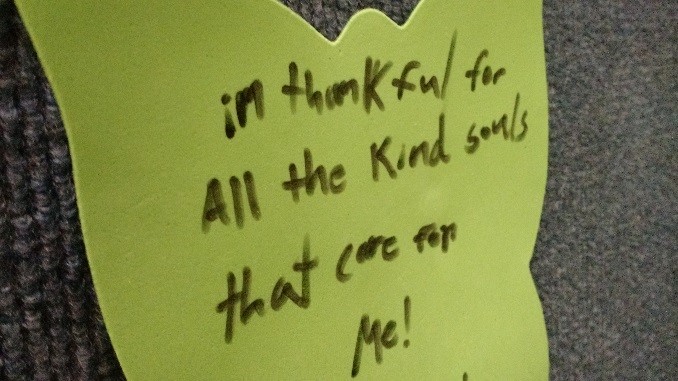 im thankful for
All the Kind souls
that care for
Me!